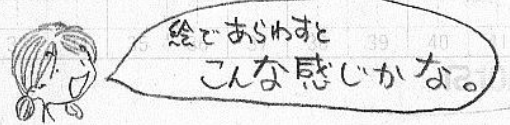 絵であらわすと
こんな感じかな。